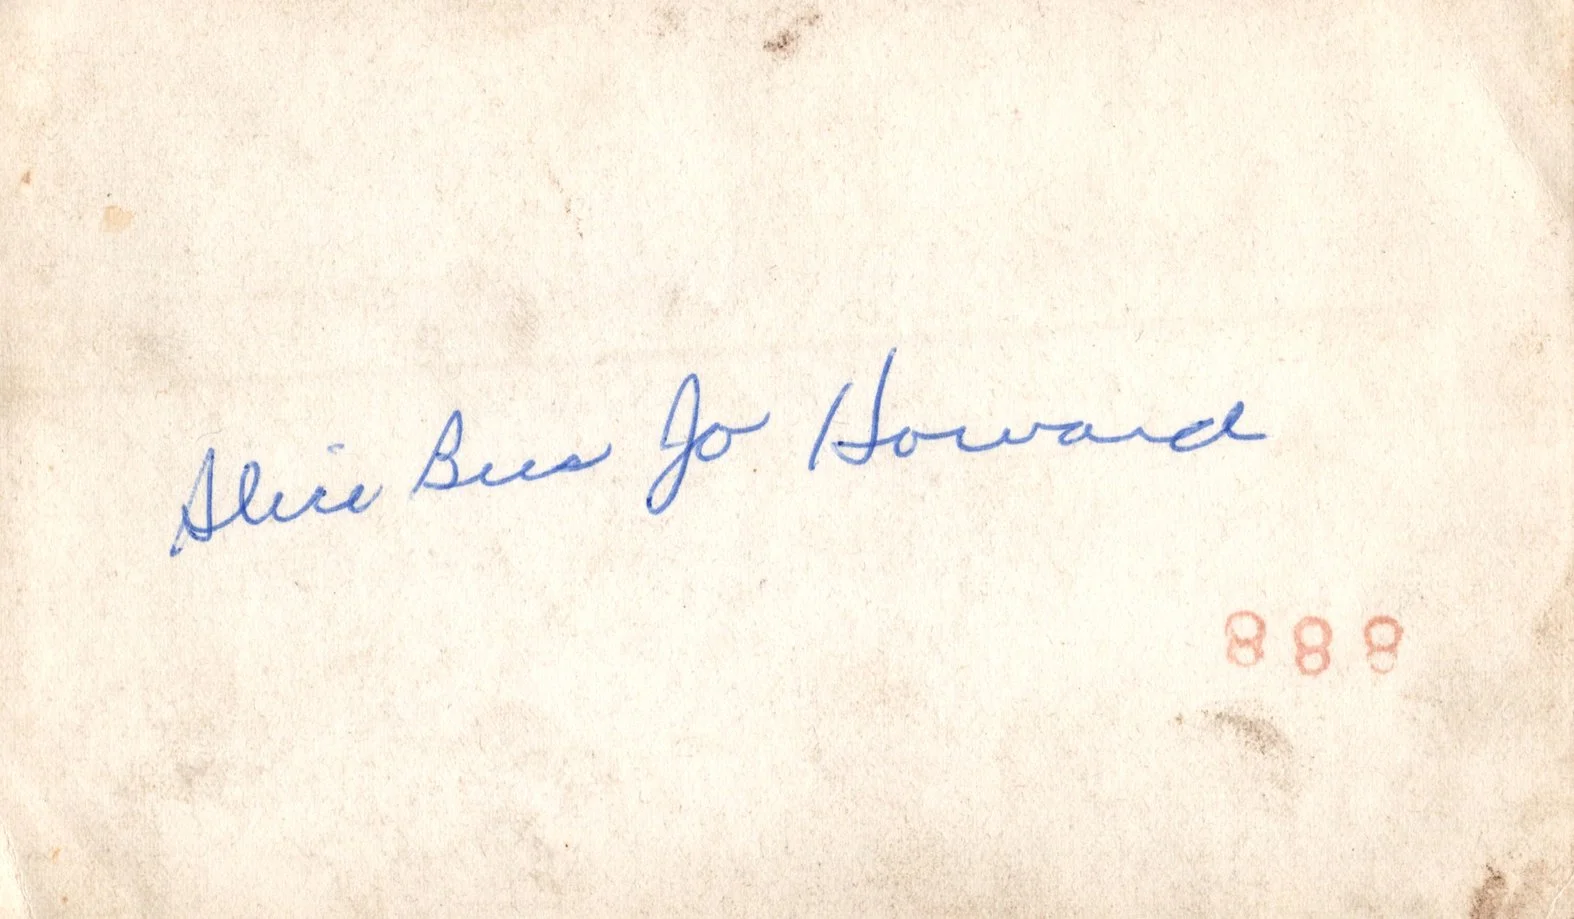 Alice Bees Jo Howard
888